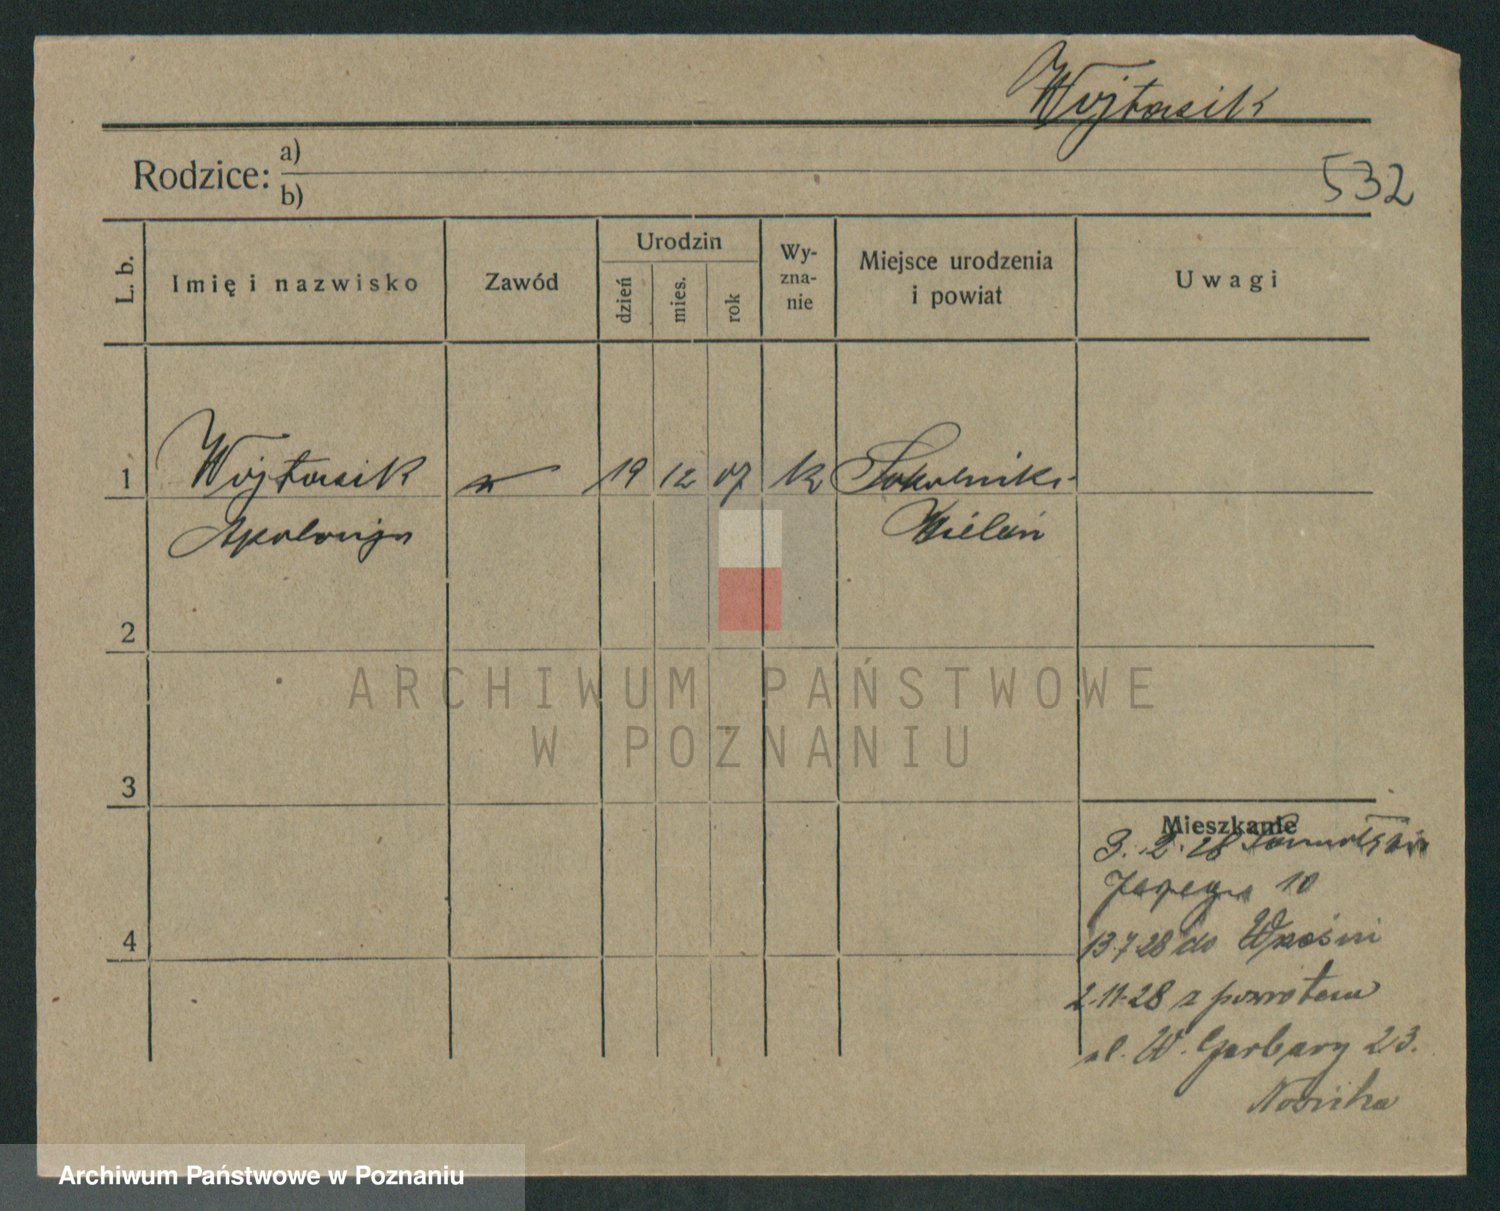 Wojtasik
Rodzice: a)
b)
532
L. b.
Imię i nazwisko
Zawód
Urodzin
dzień
mies.
rok
Wy-
zna-
nie
Miejsce urodzenia
i powiat
Uwagi
1
Wojtasik
19 12 07 k
Sokolniki
Apolonja
Wieluń
2
ARCHIWUM PAŃSTWOWE
W POZNANIU
3
Mieszkanie
3. 2. 28
10
4
13.7.28 do Wrześni
2.11.28 z powrotem
ul. W. Garbary 23.
Archiwum Państwowe w Poznaniu